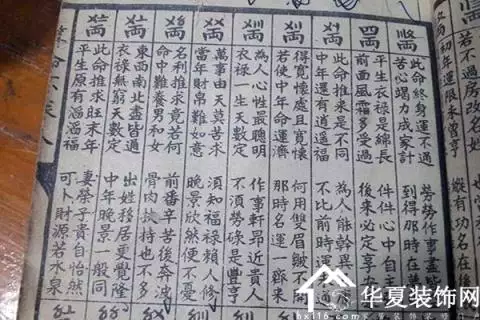 若不過房改名姓
初年運限未曾亨
縱有功名在後
此命終身運不通
勞勞作事盡皆
苦心竭力成家計
到得那時在夢
四兩
平生衣祿是綿長
件件心中自主
前面風霜多受過
後來必定享安
此命推來是不同
為人能幹異
中年還有逍遙福
不比前時運
得寬懷處且寬懷
何用雙眉皺不開
若使中年命運濟
那時名運一齊來
為人心性最聰明
作事軒昂近貴人
衣祿一生天數定
不須勞碌是豐亨
萬事由天莫苦求
須知福祿賴人修
當年財帛難如意
晚景欣然便不憂
名利推求竟若何
前番辛苦後奔波
命中難養男和女
骨肉扶持也不多
東西南北盡皆通
出姓移居更覺隆
衣祿無窮天數定
中年晚景一般同
此命推求旺末年
妻榮子貴自怡然
平生原有滔滔福
可卜財源若水泉
华夏装饰网
hx116.com